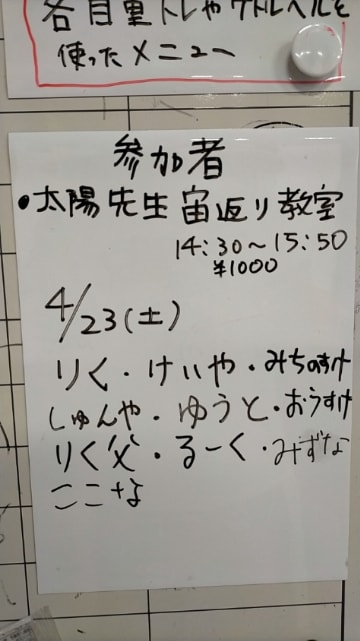 各自重トレやケトルベルを
使ったメニュー
参加者
•太陽先生宙返り教室
14:30〜15:50
¥1000
4/23(土)
りく・けいや・みちのすけ
しゅんや・ゆうと・おうすけ
りく父・るーく・みずな
ここな